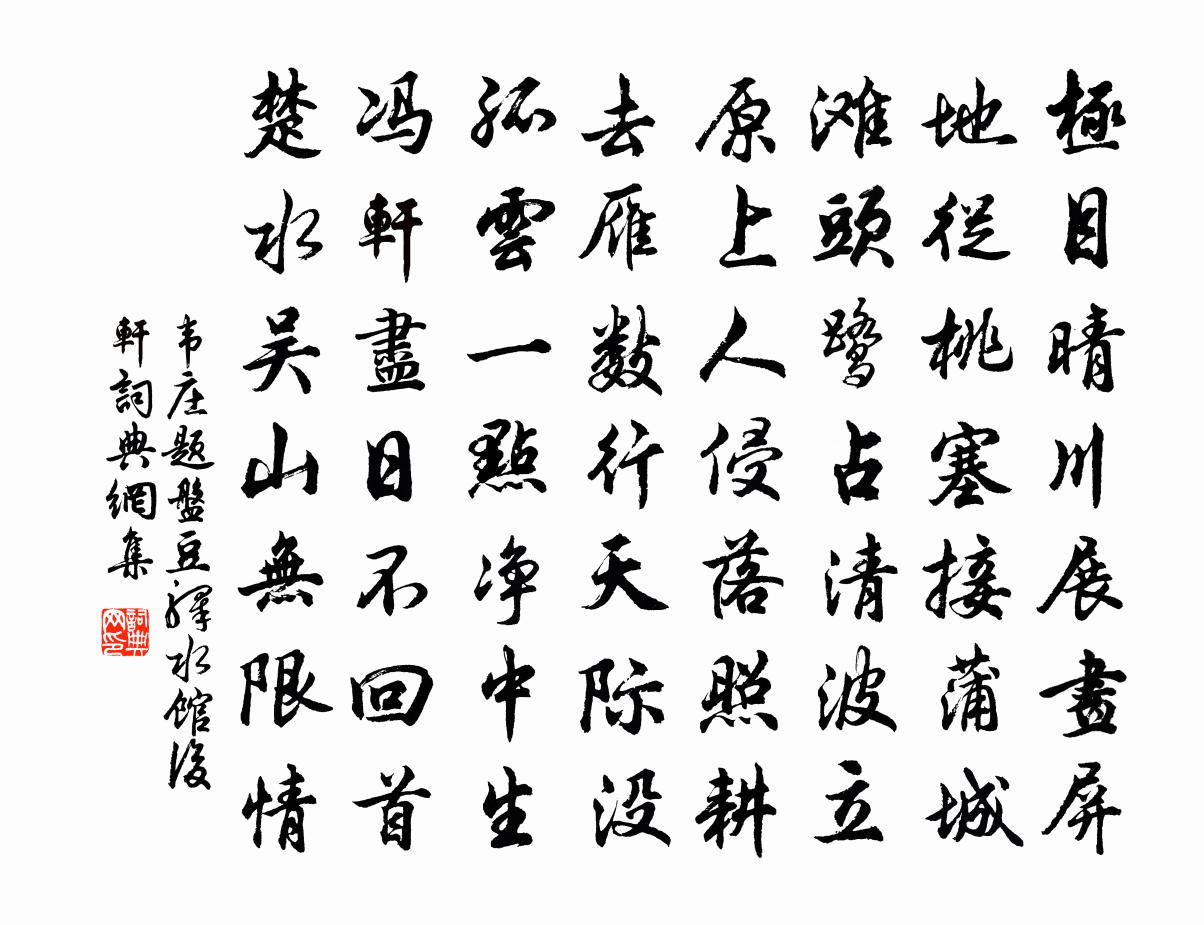 極目晴川展畫屏
地從桃塞接蒲城
滩頭鹭占清波立
原上人侵落照耕
去雁数行天际没
孤雲一點净中生
冯軒盡日不回首
楚水吴山無限情
韦庄题盤豆驛水馆後
軒詞典網集
詞典网印